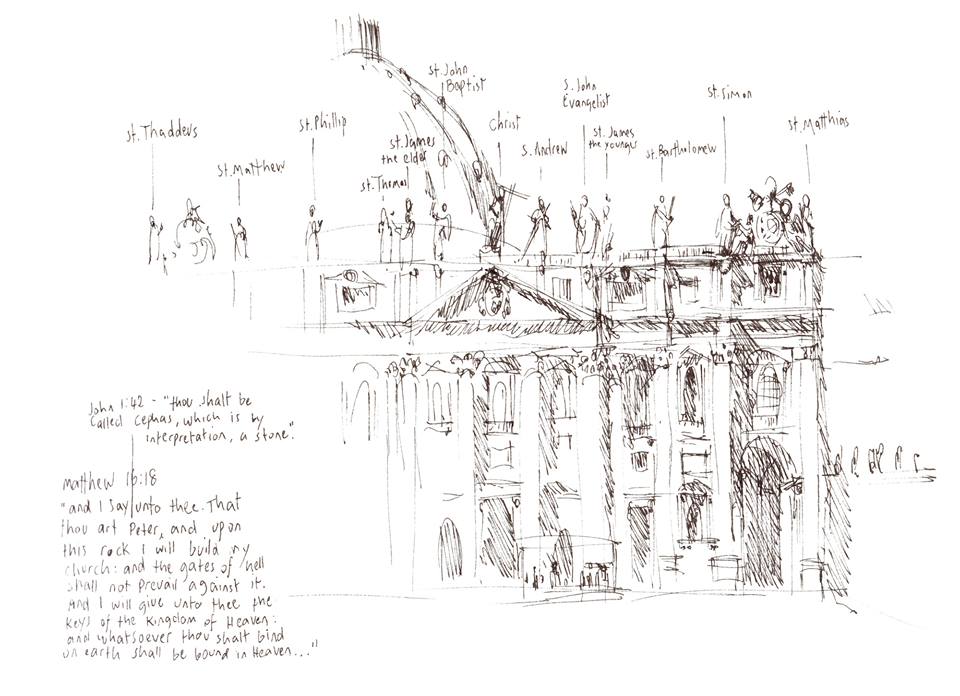 St. Thaddeus
St. Matthew
St. Phillip
St. Thomas
St. James
the elder
St. John
Baptist
Christ
S. Andrew
S. John
Evangelist
St. James
the younger
St. Bartholomew
St. Simon
St. Matthias
John 1:42 - "thou shalt be
called Cephas, which is by
interpretation, a stone".
Matthew 16:18
"and I say unto thee. That
thou art Peter, and upon
this rock I will build my
church: and the gates of hell
shall not prevail against it.
And I will give unto thee the
keys of the Kingdom of Heaven:
and whatsoever thou shalt bind
on earth shall be bound in Heaven..."